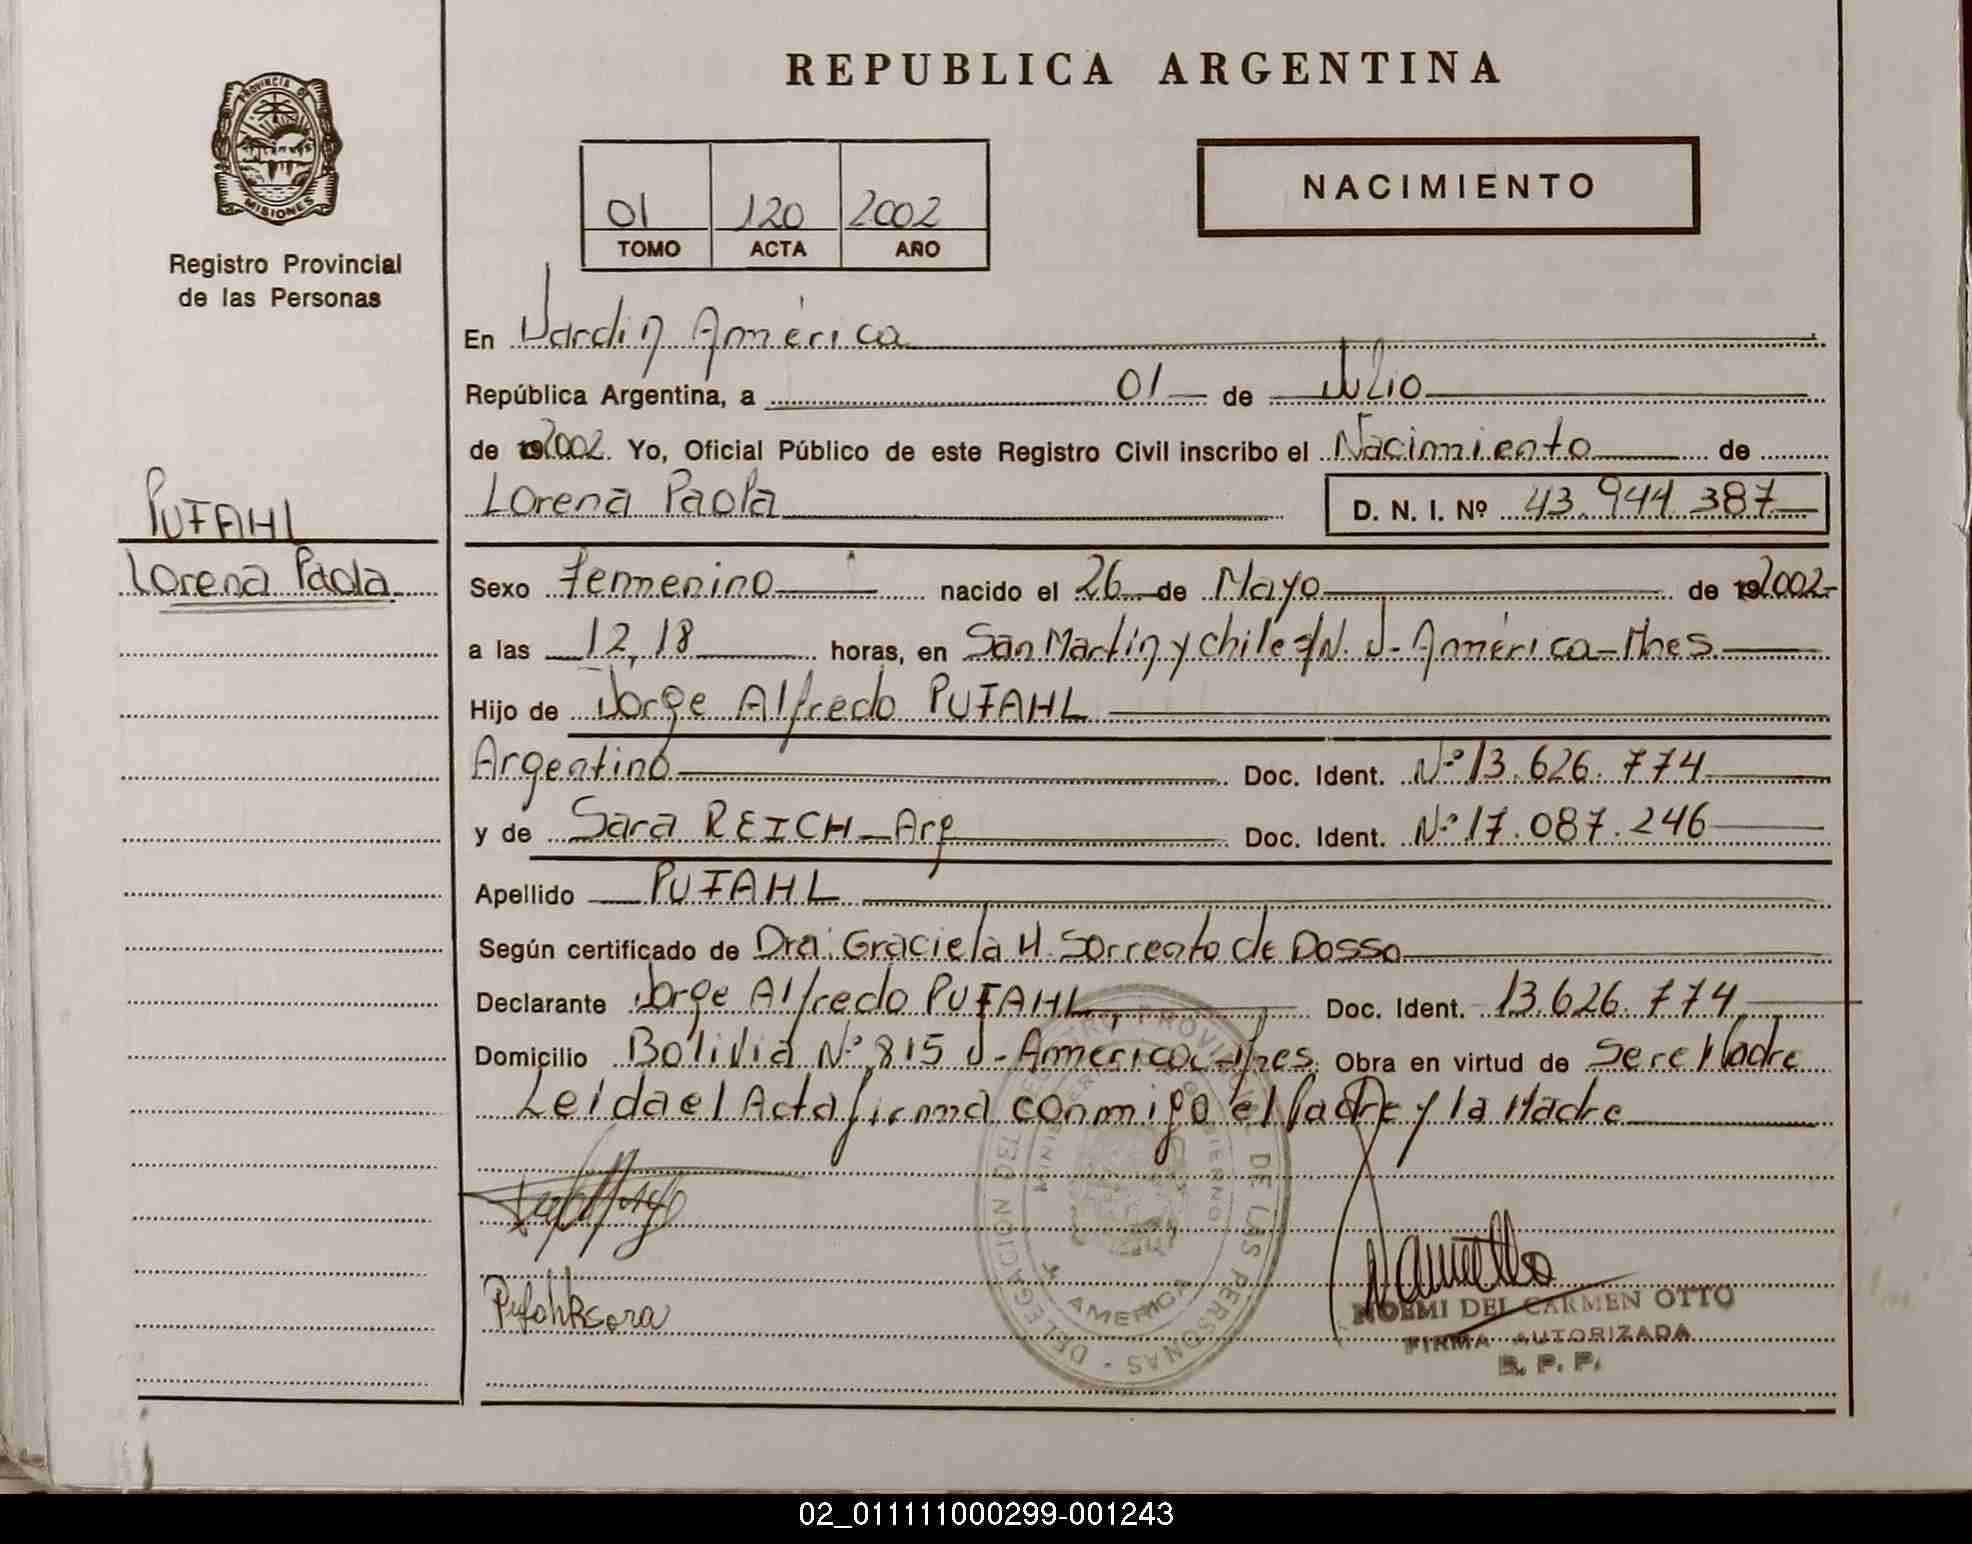 REPUBLICA ARGENTINA
PROVINCIA DE
MISIONES
Registro Provincial
de las Personas
NACIMIENTO
01 120 2002
TOMO ACTA AÑO
En Jardin América
República Argentina, a 01 de Julio
de 2002. Yo, Oficial Público de este Registro Civil inscribo el Nacimiento de
Lorena Paola D. N. I. Nº 43.944.387
PUFAHL
Lorena Paola
Sexo Femenino nacido el 26 de Mayo de 2002-
a las 12,18 horas, en San Martín y Chile s/N. J- América-Mnes
Hijo de Jorge Alfredo PUFAHL
Argentino Doc. Ident. Nº 13.626.774
y de Sara REICH-Arg Doc. Ident. Nº 17.087.246
Apellido PUFAHL
Según certificado de Dra: Graciela H. Sorrento de Dosso
Declarante Jorge Alfredo PUFAHL, Doc. Ident. 13.626.774
Domicilio Bolivia Nº 815 J-América-Mnes. Obra en virtud de Ser el Padre
Leida el Acta firma conmigo el Padre y la Madre
DELEGACION DEL REGISTRO PROVINCIAL DE LAS PERSONAS
AMERICA
NOEMI DEL CARMEN OTTO
FIRMA AUTORIZADA
R. P. P.
02_011111000299-001243